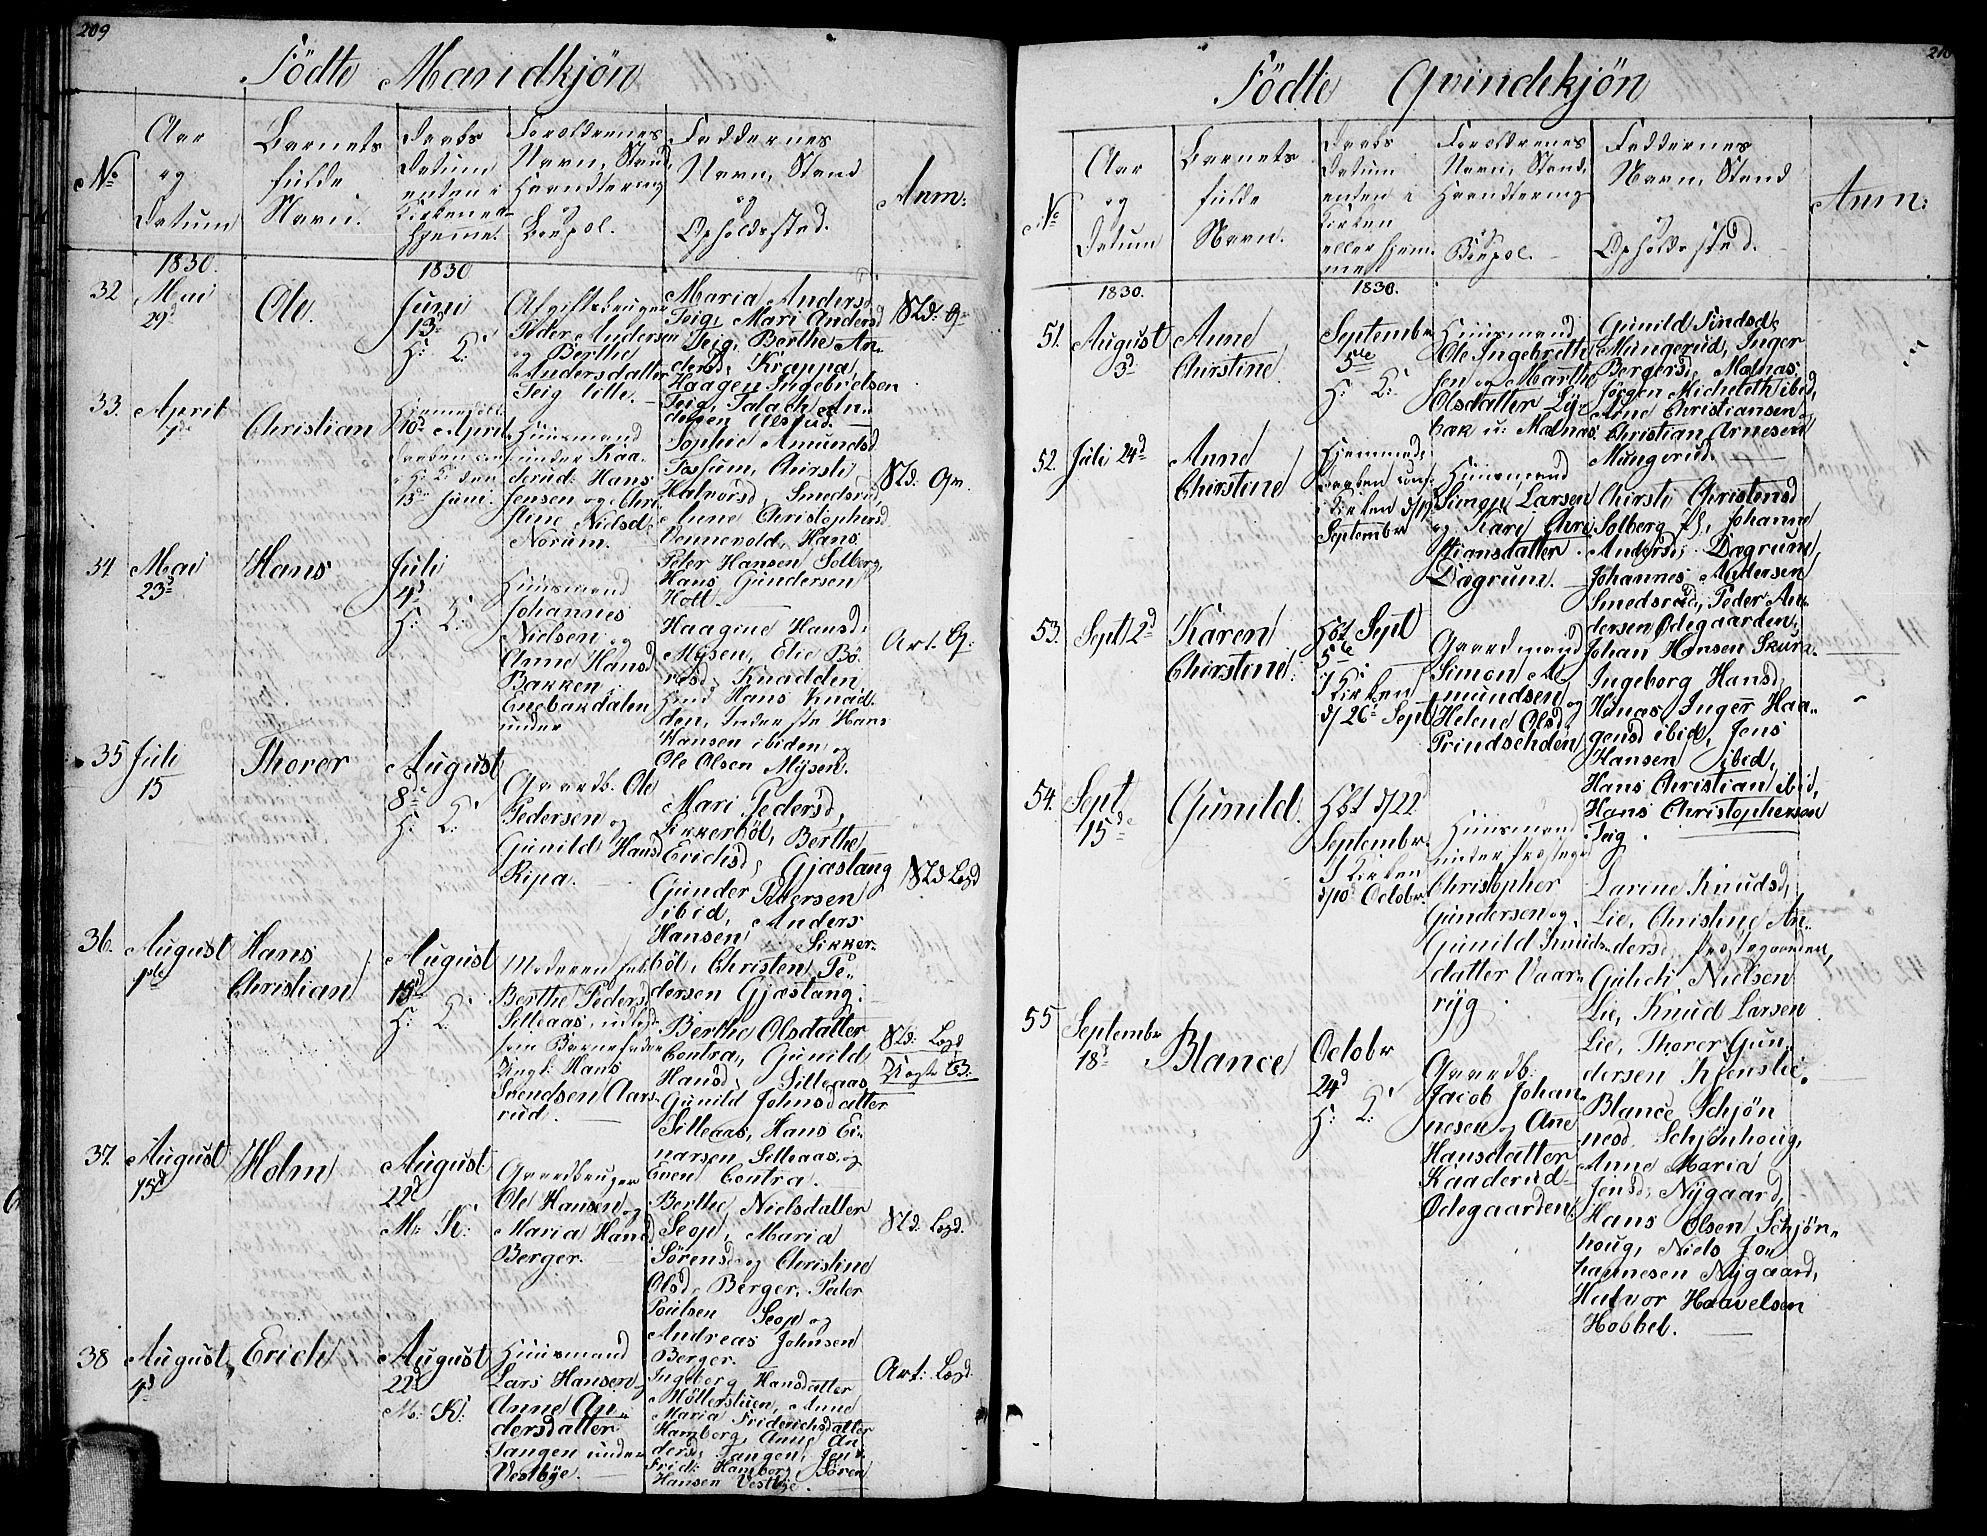 209
Födte Mandkjön
No
Aar
og
Datum
Barnets
fulde
Navn.
Daabs
Datum
enten i
Kirken el.
hjemme.
Forældrenes
Navn, Stand,
Haandtering
og
Boepæl.
Faddernes
Navn, Stand
og
Opholdssted.
Anm:
1830.
1830
32
Mai
29d
Ole.
Juni
13d
H: K:
Afgiftsbruger
Peder Andersen
og Berthe
Andersdatter
Teig lille.
Maria Andersd
Teig, Mari Andersd
Teig, Berthe An-
dersd, Krappa,
Haagen Ingebretsen
Teig, Palach An-
dersen Ulsrud.
Nld: Q:
33.
April
1d
Christian
Hjemmedøbt
10d April
Daaben conf.
i H: K: den
13de Juni.
Huusmand
under Kaa-
derud: Hans
Jensen og Chri
stine Nielsd
Norum.
Sophie Amundsd
Fossum, Chirsti
Halvorsd, Smedsrud,
Anne Christophersd
Vennevold, Hans
Peter Hansen Solberg,
Hans Gundersen
Holt.
Nld: Qv.
34
Mai
23d
Hans
Juli
4d
H: K:
Huusmand
Johannes
Nielsen og
Anne Hansd
Bakken
Enebakdalen
under
Haagine Hansd,
Mysen, Elie Bö-
resd, Knadden
Smed Hans Knad-
den, Inderste Hans
Hansen ibiden og
Ole Olsen Mysen.
Art. Q:
35
Juli
15
Thorer
August
8de
H: K:
Gaardb. Ole
Pedersen og
Gunild Hansd
Ripa.
Mari Pedersd,
Sikkerböl, Berthe
Erichsd, Gjæstang
Gunder Pedersen
ibid, Anders
Hansen Sikker-
böl, Christen Pe-
dersen Gjæstang.
Nld Logd
36.
August
1ste
Hans
Christian
August
15d
H: K:
Moderen
Berthe Pedersd
Silleaas, udlagt
som Barnefader
Ungk. Hans
Svendsen Aars-
rud.
Berthe Olsdatter
Contra, Gunild
Hansd, Silleaas
Gunild Johnsdatter
Silleaas, Hans Ei-
narsen Silleaas, og
Even Contra.
Nld: Logd
Uægte B.
37.
August
15d
Holm
August
22d
M: K:
Gaardbruger
Ole Hansen og
Maria Hansd
Berger.
Berthe Nielsdatter
Seop, Maria
Sörensd og Christine
Olsd, Berger, Peder
Poulsen Seop og
Andreas Johnsen
Berger.
Nld: Logd.
38
August
4d
Erich
August
22d
M: K:
Huusmand
Lars Hansen og
Anne An-
dersdatter
Tangen under
Vestbye.
Ingeberg Hansdatter
Möllerstuen, Anne
Maria Friderichsdatter
Hamborg, Anne An
dersd, Tangen, Jens
Frid: Hamborg, Sören
Hansen Vestbye.
Art: Logd.
210
Födte Qvindekjön
No
Aar
og
Datum
Barnets
fulde
Navn.
Daabs
Datum
enten i
Kirken
eller hjem-
me
Forældrenes
Navn, Stand,
Haandtering
og
Boepæl.
Faddernes
Navn, Stand
og
Opholdssted.
Anm:
1830.
1830.
51.
August
3d
Anne
Chirstine.
Septembr
5te
H: K:
Huusmand
Ole Ingebreth-
sen og Marthe
Olsdatter Ly-
bak u: Malnas.
Gunild Sindsd,
Mungerud, Inger
Bergersd, Malnas,
Jörgen Micheleth ibid,
Arne Christiansen og
Christian Arnesen
Mungerud.
52.
Juli 24d
Anne
Chirstine
Hjemmed:
Daaben conf.
i Kirken d/19
September
Huusmand
Simon Larsen
og Kari Chri
stiansdatter
Dægrum.
Chirsti Christensd
Solberg, Johanne
Andersd, Dægrum,
Johannes Andersen
Smedsrud, Peder An-
dersen Ödegaarden,
Johan Hansen Skura.
53.
Sept 2d
Karen
Chirstine.
Hbt Sept
5te
I Kirken
d/26d Sept
Gaardmand
Simon A-
mundsen og
Helene Olsd
Prindsehden
Ingeborg Hansd,
Hanas Inger Haa-
gensd ibid, Jens
Hansen ibid,
Hans Christian ibid,
Hans Christophersen
Teig.
54.
Sept
15de
Gunild.
Hbt d/22
Septembr
I Kirken
d/10d Octobr.
Huusmand
under Præstegd
Christopher
Gundersen og
Gunild Knuds-
datter Vaar-
ryg.
Larine Knudsd,
Lie, Christine An-
dersd, Præstegaarden,
Gulich Nielsen
Lie, Knud Larsen
Lie, Thorer Gun-
dersen Kjenslie.
55
Septembr
18d
Blance
Octobr
24d
H: K:
Gaardb:
Jacob Johan-
nesen og Ane
Hansdatter
Kaaderud-
Ödegaarden
Blance Schjön
nesd, Schjönhoug,
Anne Maria
Jensd, Nygaard,
Hans Olsen Schjön-
houg, Niels Jo
hannesen Nygaard,
Halvor Haavelsen
Hobbel.